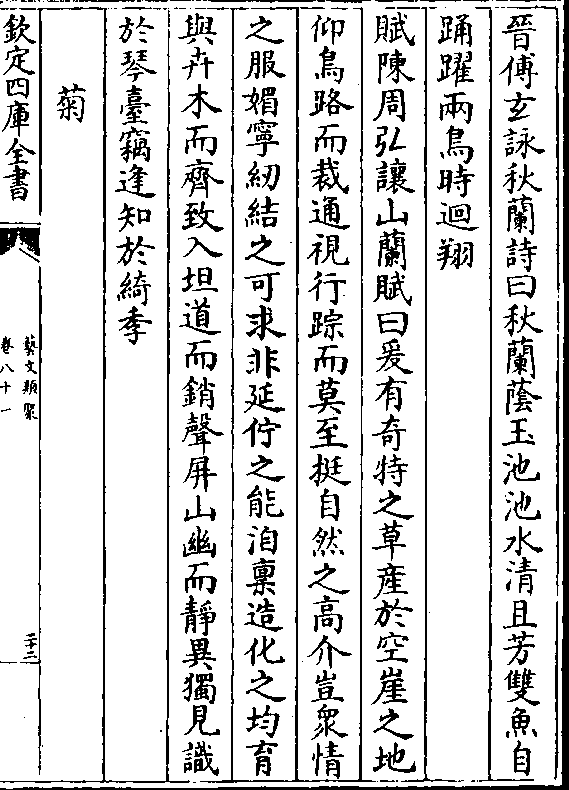 晉傅玄詠秋蘭詩曰秋蘭蔭玉池池水清且芳雙魚自
踊躍兩鳥時迴翔
賦陳周弘讓山蘭賦曰爰有奇特之草産於空崖之地
仰鳥路而裁通視行踪而莫至挺自然之高介豈衆情
之服媚寧紉結之可求非延佇之能洎禀造化之均育
與卉木而齊致入坦道而銷聲屏山幽而靜異獨見識
於琴臺竊逢知於綺季
菊
欽定四庫全書
藝文類聚
卷八十一
二十二